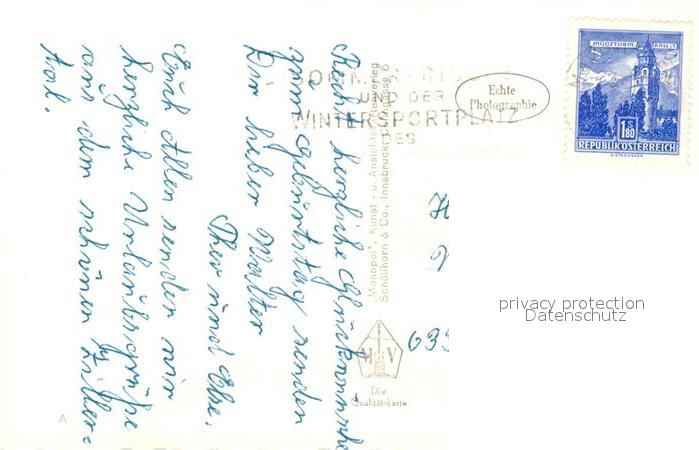 Recht herzliche Glückwünsche
zum Geburtstag senden
Dir lieber Walter
Theo und Else.
Euch Allen senden wir
herzliche Urlaubsgrüße
aus dem schönen Ziller=
tal.
SOMMERFRISCHE
UND DER
WINTERSPORTPLATZ
DES
Echte
Photographie
MÜNZTURM HALL I. T.
1.80
S
REPUBLIK ÖSTERREICH
"Monopol", Kunst- u. Ansichtskartenverlag
Schöllhorn & Co., Innsbruck,
M V
Die
Qualitätskarte
633
A
privacy protection
Datenschutz